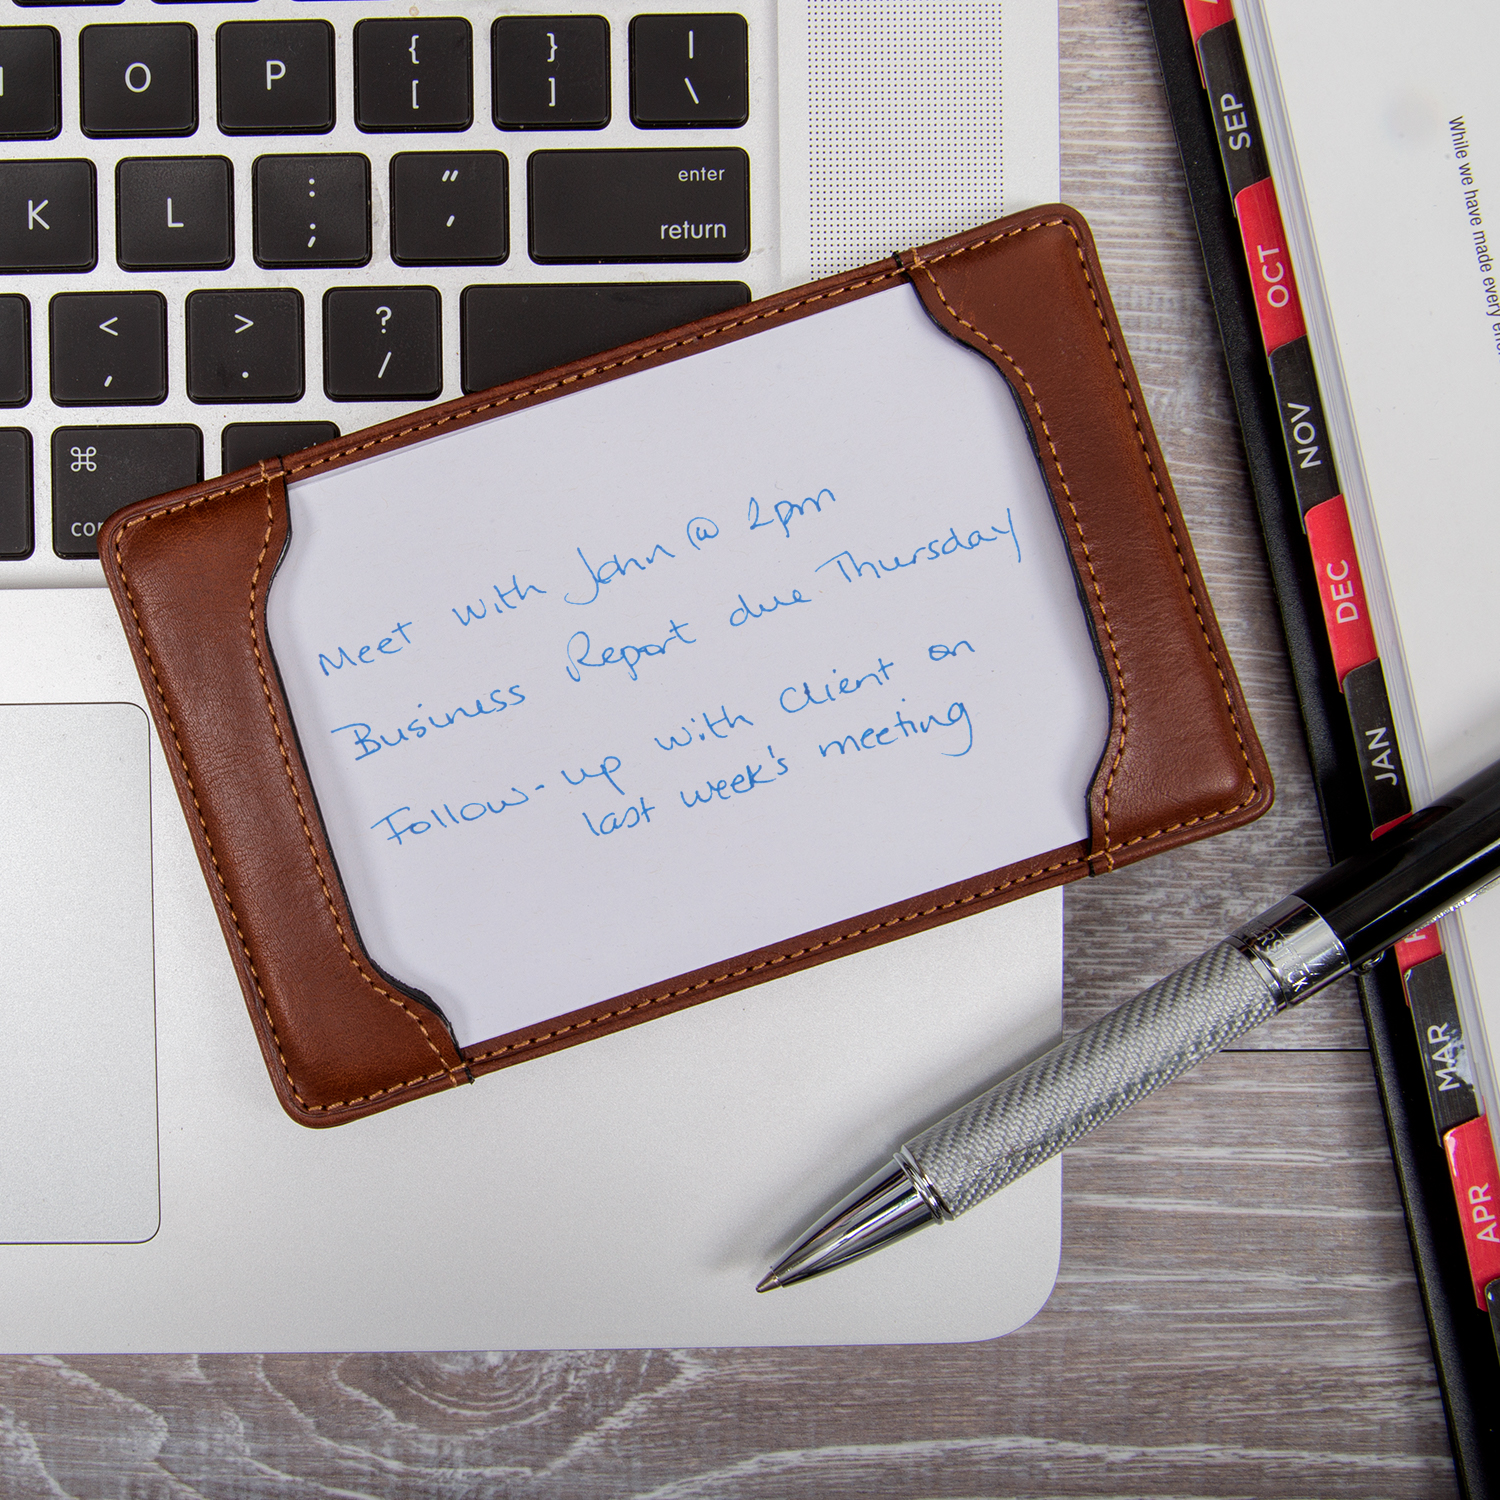 O
P
{
[
}
]
|
\
K
L
:
;
"
'
enter
return
<
,
>
.
?
/
⌘
Meet with John @ 2pm
Business Report due Thursday
Follow-up with Client on
last week's meeting
SEP
OCT
NOV
DEC
JAN
MAR
APR
While we have made every